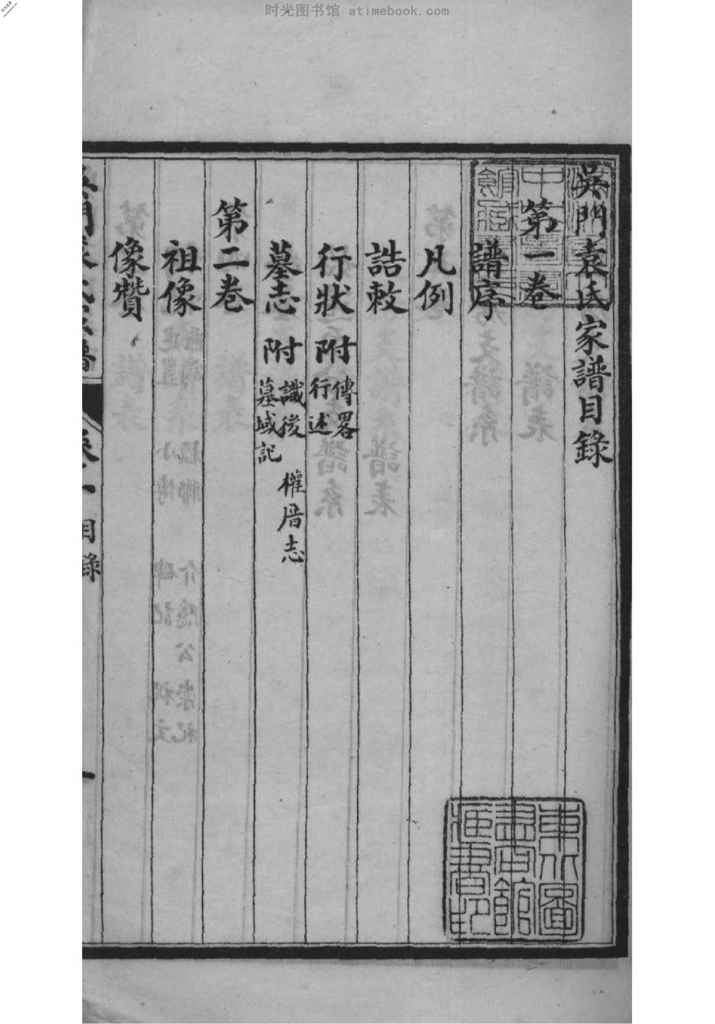 时光图书馆 atimebook.com
吳門袁氏家譜目錄
第一卷
譜序
凡例
誥敕
行狀 附 傳畧 行述
墓志 附 識後 墓域記 權厝志
第二卷
祖像
像贊
吳門袁氏家譜 卷一 目錄 一